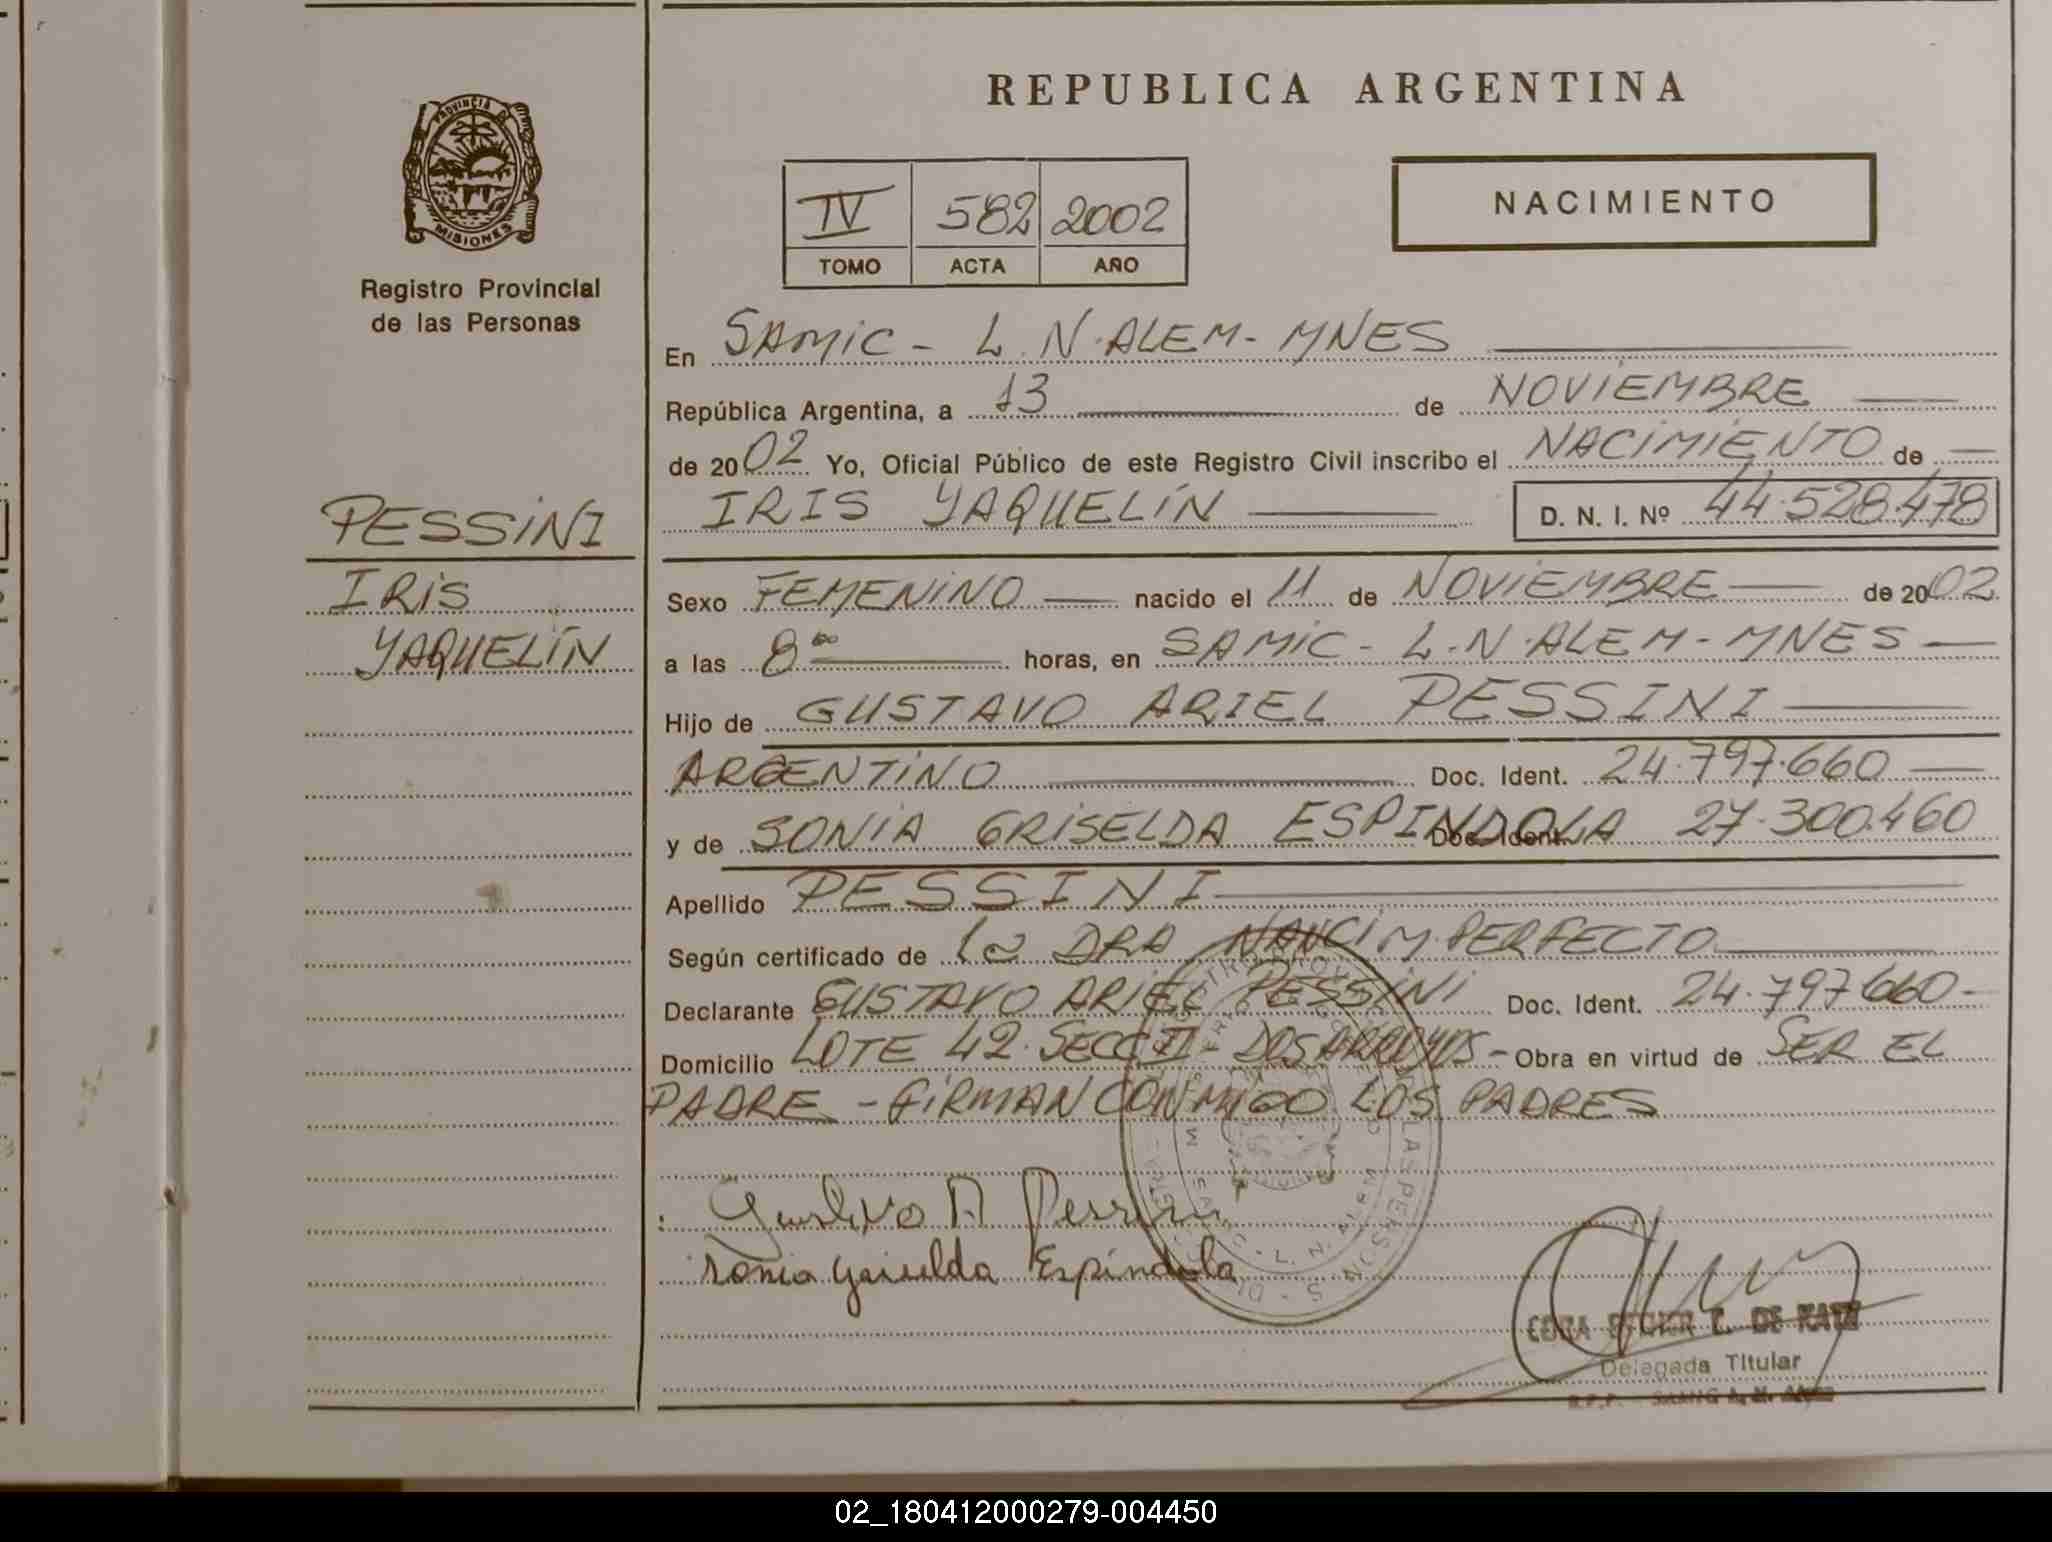 REPUBLICA ARGENTINA
PROVINCIA DE
MISIONES
Registro Provincial
de las Personas
IV 582 2002
TOMO ACTA AÑO
NACIMIENTO
En SAMIC - L.N. ALEM - MNES
República Argentina, a 13 de NOVIEMBRE
de 2002 Yo, Oficial Público de este Registro Civil inscribo el NACIMIENTO de
IRIS YAQUELÍN D. N. I. Nº 44.528.478
PESSINI
IRIS
YAQUELÍN
Sexo FEMENINO nacido el 11 de NOVIEMBRE de 2002
a las 8 00 horas, en SAMIC - L.N. ALEM - MNES
Hijo de GUSTAVO ARIEL PESSINI
ARGENTINO Doc. Ident. 24.797.660
y de SONIA GRISELDA ESPINDOLA Doc. Ident. 27.300.460
Apellido PESSINI
Según certificado de la DRA NANCI M. PERFECTO
Declarante GUSTAVO ARIEL PESSINI Doc. Ident. 24.797.660
Domicilio LOTE 42. SECC II - DOS ARROYOS - Obra en virtud de SER EL
PADRE - FIRMAN CONMIGO LOS PADRES
Gustavo A Pessini
Sonia Griselda Espíndola
DE KATZ
Delegada Titular
R.P.P. SAMIC L. N. Alem
02_180412000279-004450